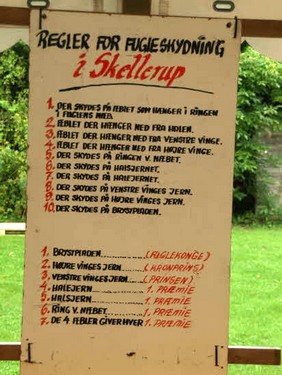 REGLER FOR FUGLESKYDNING
i Skellerup
1. DER SKYDES PÅ ÆBLET SOM HÆNGER I RINGEN
I FUGLENS NÆB.
2. ÆBLET DER HÆNGER NED FRA HALEN.
3. ÆBLET DER HÆNGER NED FRA VENSTRE VINGE.
4. ÆBLET DER HÆNGER NED FRA HØJRE VINGE.
5. DER SKYDES PÅ RINGEN V. NÆBBET.
6. DER SKYDES PÅ HALSJERNET.
7. DER SKYDES PÅ HALEJERNET.
8. DER SKYDES PÅ VENSTRE VINGES JERN.
9. DER SKYDES PÅ HØJRE VINGES JERN.
10. DER SKYDES PÅ BRYSTPLADEN.
1. BRYSTPLADEN..........(FUGLEKONGE)
2. HØJRE VINGES JERN.......(KRONPRINS)
3. VENSTRE VINGES JERN......(PRINSEN)
4. HALEJERN............1. PRÆMIE
5. HALSJERN............1. PRÆMIE
6. RING V. NÆBET.........1. PRÆMIE
7. DE 4 ÆBLER GIVER HVER 1. PRÆMIE